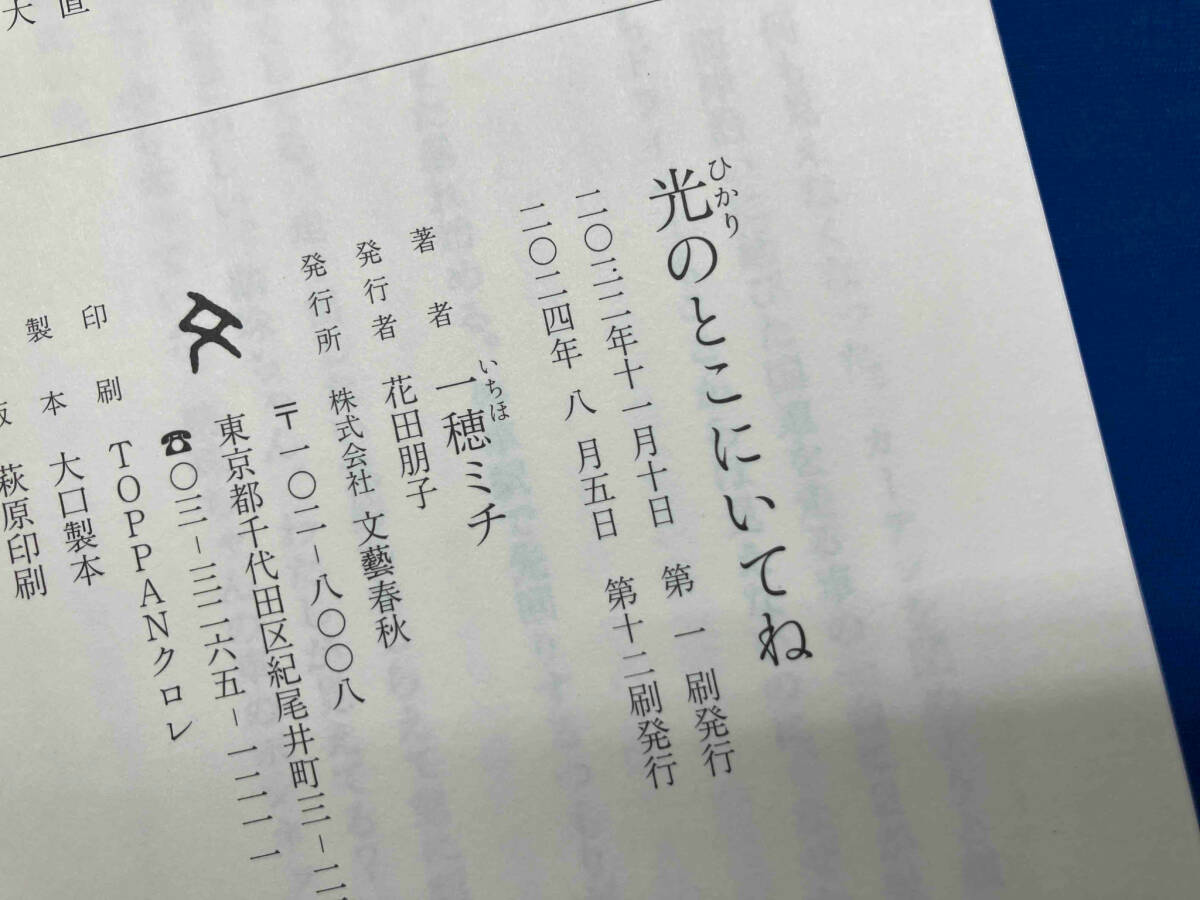 直
大
ひかり
光のとこにいてね
二〇二二年十一月十日 第一刷発行
二〇二四年 八 月五日 第十二刷発行
いちほ
著者 一穂ミチ
発行者 花田朋子
発行所 株式会社 文藝春秋
〒一〇二-八〇〇八
東京都千代田区紀尾井町三-二
☎〇三-三二六五-一二一一
印刷 TOPPANクロレ
製本 大口製本
萩原印刷